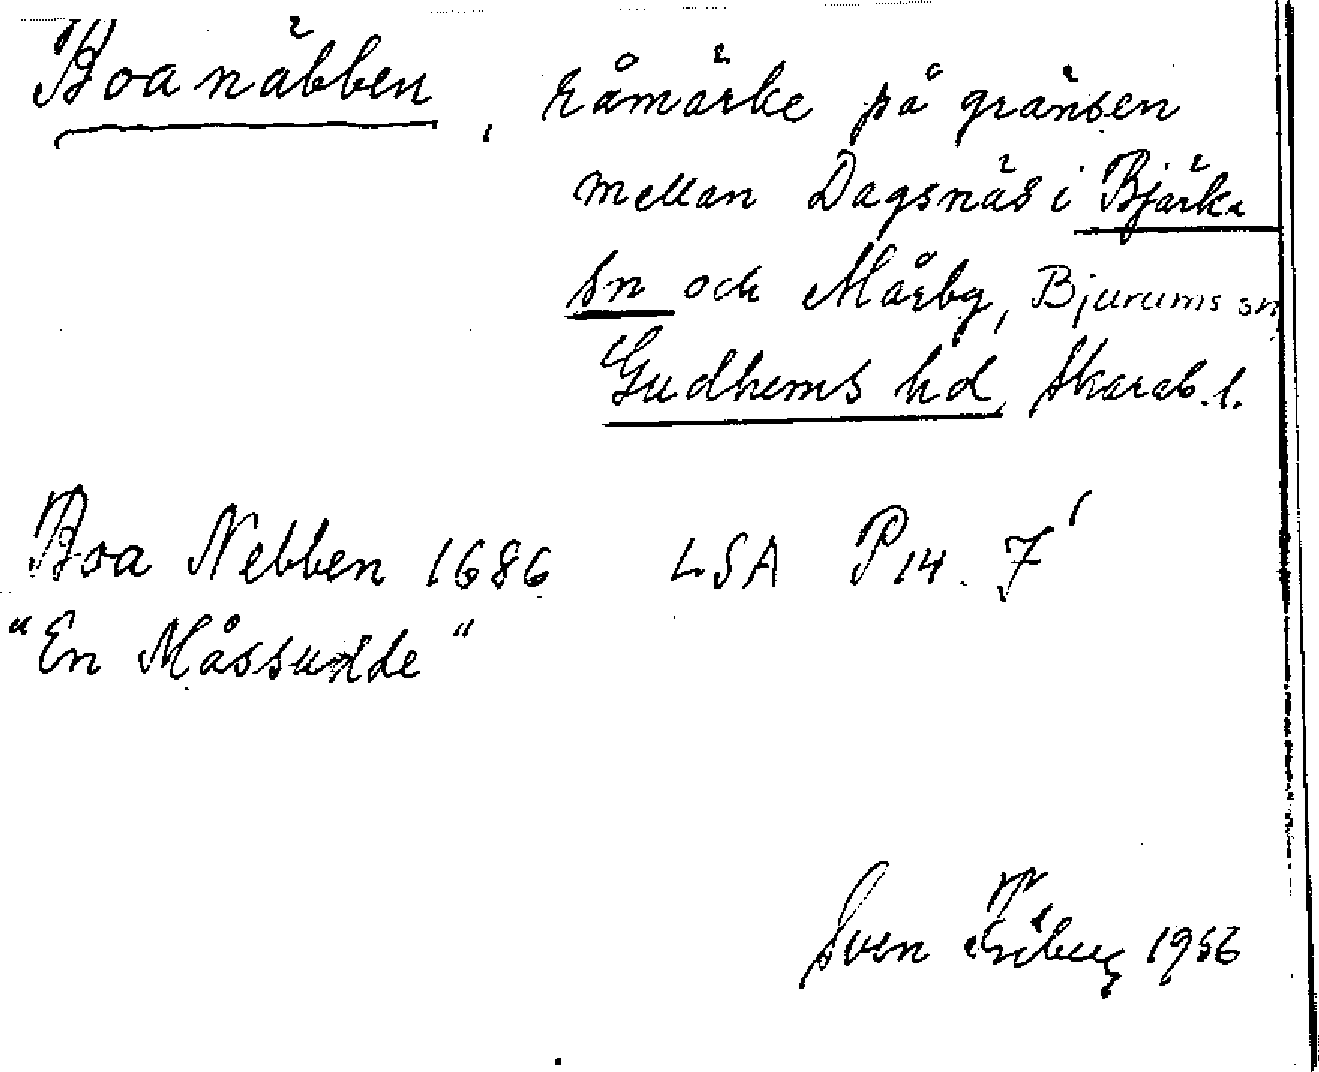 Boanäbben, råmärke på gränsen
mellan Dagsnäs i Bjärka
sn och Mårby, Bjurums sn
Gudhems hd, Skarab. l.
Boa Nebben 1686 LSA P14. 7'
"En Måssudde"
Sven Friberg 1956